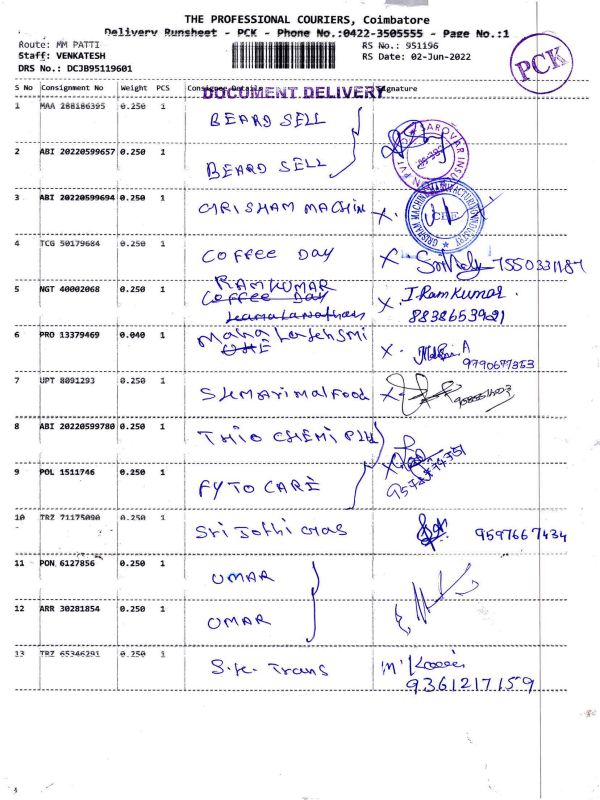 THE PROFESSIONAL COURIERS, Coimbatore
Delivery Runsheet - PCK - Phone No.:0422-3505555 - Page No.:1
Route: MM PATTI RS No.: 951196
Staff: VENKATESH RS Date: 02-Jun-2022
DRS No.: DCJB95119601
PCK
S No Consignment No Weight PCS Consignee Details Signature
DOCUMENT DELIVERY
1 MAA 288186395 0.250 1 BEARD SELL
2 ABI 20220599657 0.250 1 BEARD SELL
3 ABI 20220599694 0.250 1 GRISHAM MACHINE X.
4 TCG 50179684 0.250 1 COFFEE DAY X. 7550331187
5 NGT 40002068 0.250 1 RAMKUMAR X. J.Ram Kumar.
Coffee Day 8838653921
6 PRO 13379469 0.040 1 Maha X. A
9790677353
7 UPT 8091293 0.250 1 Food X.
8 ABI 20220599780 0.250 1 THIO CHEMI X
9 POL 1511746 0.250 1 FYTO CARE
10 TRZ 71175090 0.250 1 Sri Jothi Gas 9597667434
11 PON 6127856 0.250 1 UMAR
12 ARR 30281854 0.250 1 UMAR
13 TRZ 65346291 0.250 1 S.K. Trans
9361217159